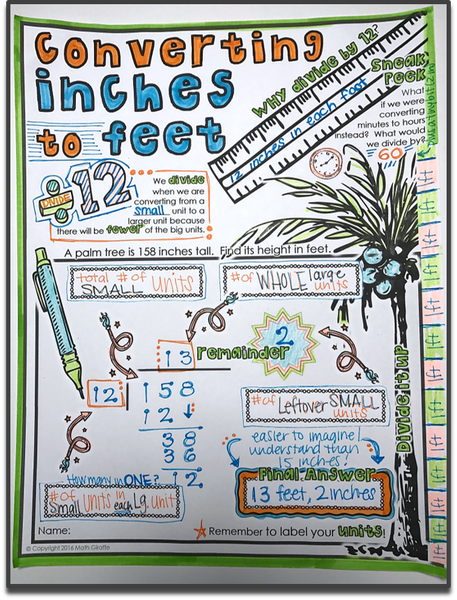 Converting
inches
to feet
Why divide by 12?
12 inches in each foot
Sneak
Peek
What
if we were
converting
minutes to hours
instead? What would
we divide by?
60
DIVIDE
÷12
We divide
when we are
converting from a
small unit to a
larger unit because
there will be fewer of the big units.
A palm tree is 158 inches tall. Find its height in feet.
total # of
SMALL units
# of WHOLE large
units
13 remainder 2
12 158
12
38
36
2
# of Leftover SMALL
units
easier to imagine/
understand than
15 inches!
How many in ONE? 12
# of
Small units in
each Lg. unit
Final Answer
13 feet, 2 inches
Name:
Remember to label your units!
© Copyright 2016 Math Giraffe
Divide it up
1ft
1ft
1ft
1ft
1ft
1ft
1ft
1ft
1ft
1ft
1ft
1ft
1ft